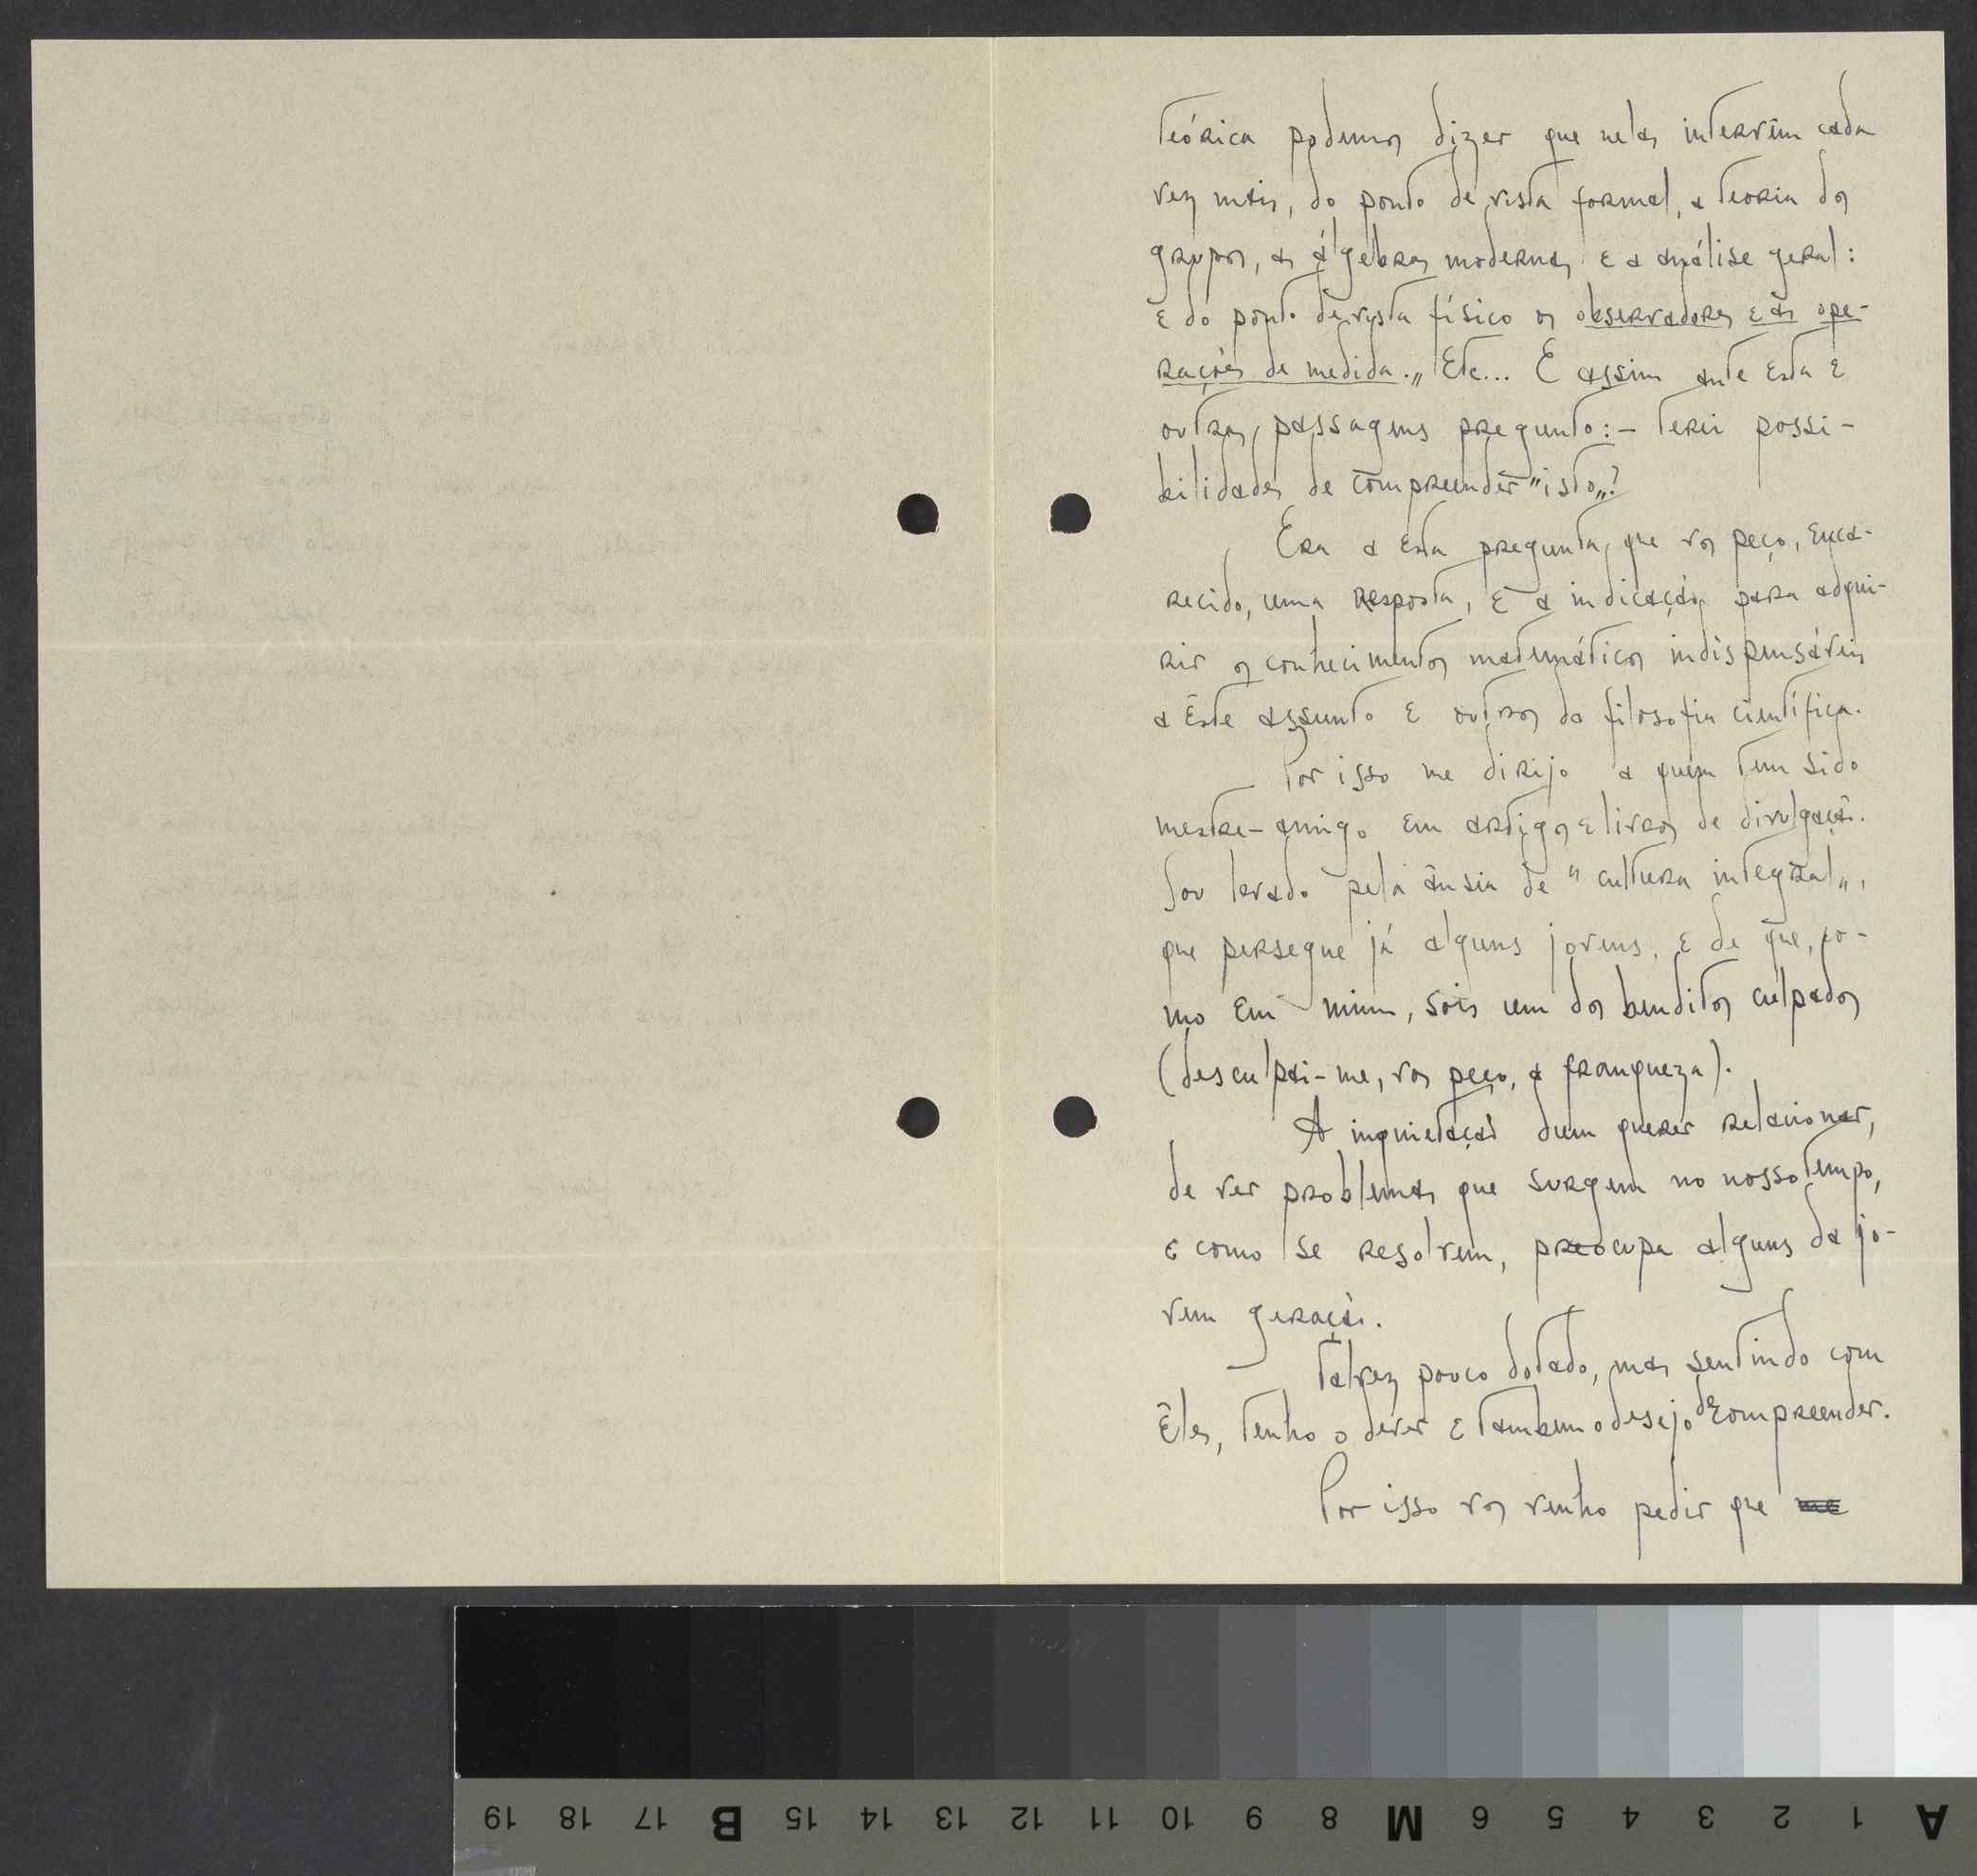 teórica podemos dizer que nelas intervêm cada
vez mais, do ponto de vista formal, a teoria dos
grupos, as álgebras modernas e a análise geral:
e do ponto de vista físico os observadores e as ope-
rações de medida.„ Etc... E assim ante esta e
outras, passagens pregunto:- terei possi-
bilidades de compreender "isto„?
Era a esta pregunta, que vos peço, enca-
recido, uma resposta, e a indicação para adqui-
rir os conhecimentos matemáticos indispensáveis
a êste assunto e outros da filosofia científica.
Por isso me dirijo a quem tem sido
mestre-amigo em artigos e livros de divulgação.
Sou levado pela ânsia de "cultura integral„,
que persegue já alguns jovens, e de que, co-
mo em mim, sois um dos benditos culpados
(desculpai-me, vos peço, a franqueza).
A inquietação dum querer relacionar,
de ver problemas que surgem no nosso tempo,
e como se resolvem, preocupa alguns da jo-
vem geração.
Talvez pouco dotado, mas sentindo com
êles, tenho o dever e tambem o desejo de compreender.
Por isso vos venho pedir que me
A 1 2 3 4 5 6 M 8 9 10 11 12 13 14 15 B 17 18 19